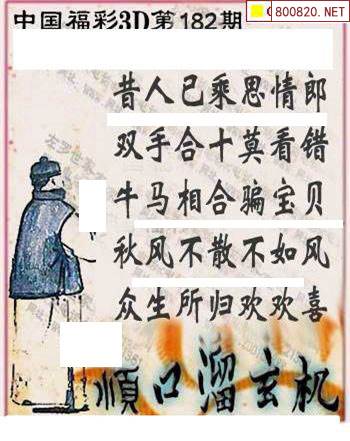 中国福彩3D第182期
800820.NET
昔人已乘思情郎
双手合十莫看错
牛马相合骗宝贝
秋风不散不如风
众生所归欢欢喜
順口溜玄机